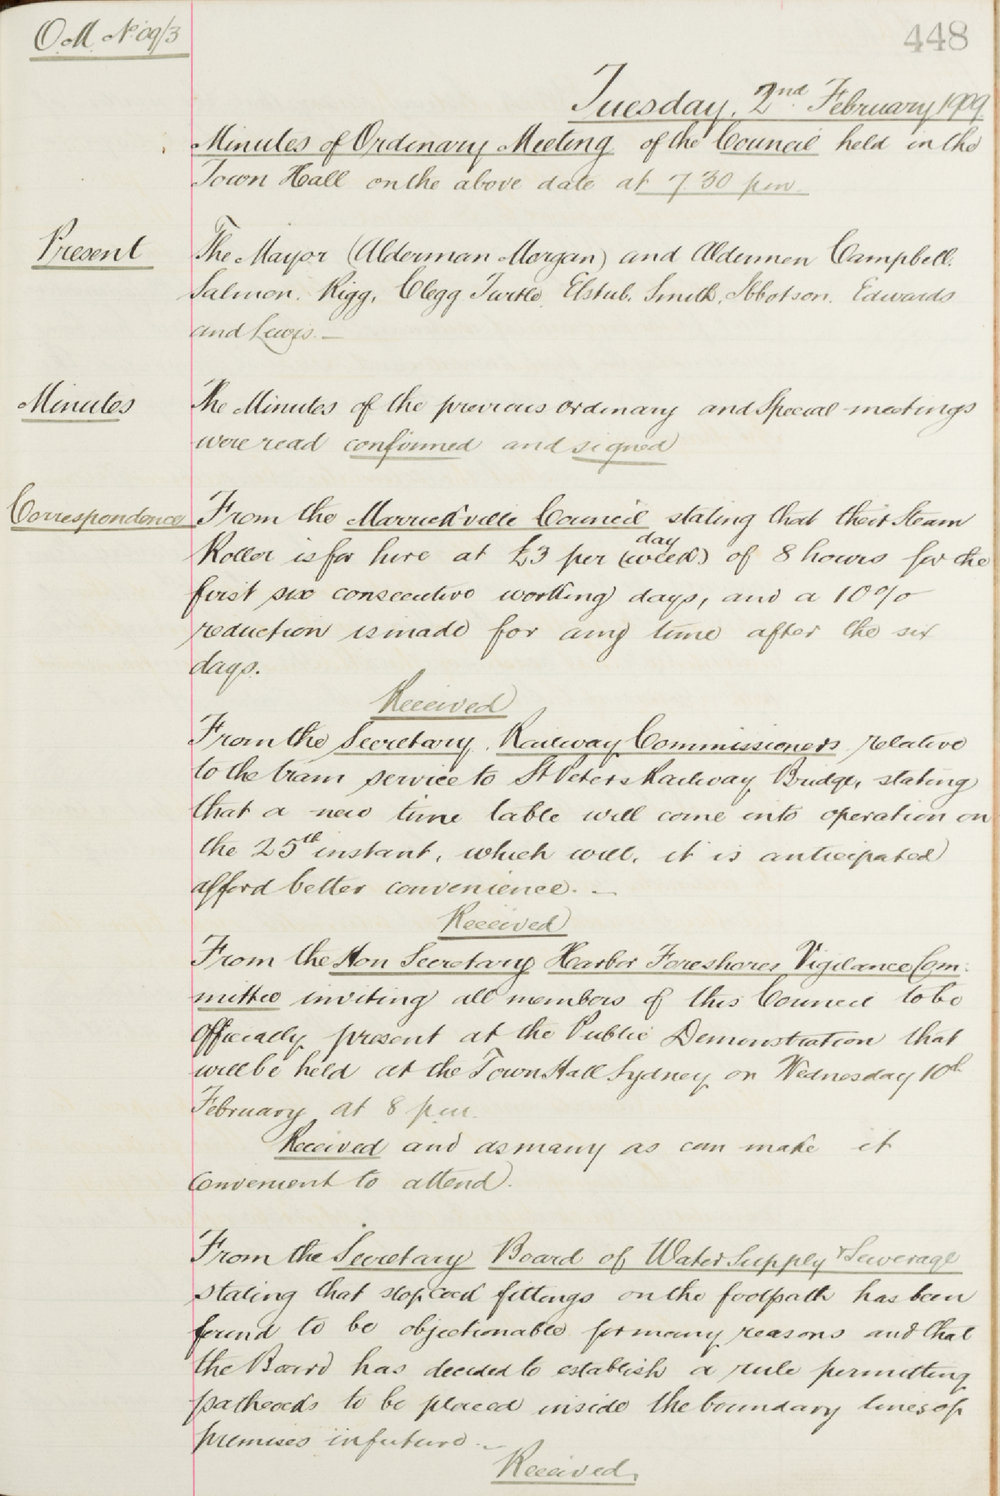 O.M. No 09/3
448
Tuesday, 2nd February 1909
Minutes of Ordinary Meeting of the Council held in the
Town Hall on the above date at 7 30 pm.
Present
The Mayor (Alderman Morgan) and Aldermen Campbell.
Salmon. Rigg, Clegg Turtle, Elstub. Smith, Ibbotson. Edwards
and Lewis.—
Minutes
The Minutes of the previous ordinary and Special meetings
were read confirmed and signed
Correspondence
From the Marrickville Council stating that their Steam
day
Roller is for hire at £3 per (week) of 8 hours for the
first six consecutive working days, and a 10%
reduction is made for any time after the six
days.
Received
From the Secretary, Railway Commissioners relative
to the tram service to St Peters Railway Bridge, stating
that a new time table will come into operation on
the 25th instant, which will, it is anticipated
afford better convenience. —
Received
From the Hon Secretary Harbor Foreshores Vigilance Com-
mittee inviting all members of this Council to be
officially present at the Public Demonstration that
will be held at the Town Hall Sydney on Wednesday 10th
February at 8 pm.
Received and as many as can make it
convenient to attend.
From the Secretary Board of Water Supply & Sewerage
stating that stop cock fittings on the footpath has been
found to be objectionable for many reasons and that
the Board has decided to establish a rule permitting
pathcocks to be placed inside the boundary lines of
premises in future. —
Received.